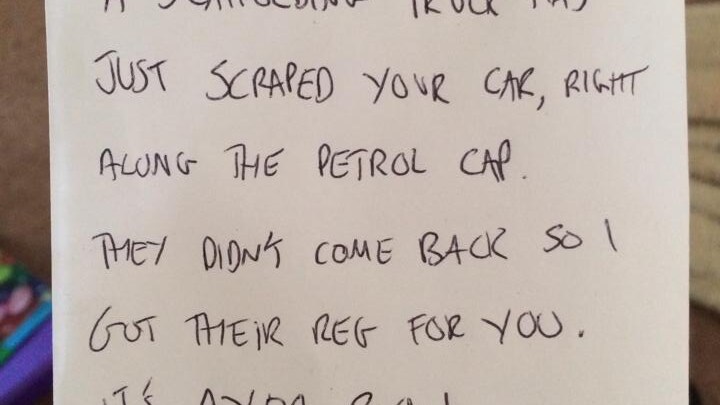 A SCAFFOLDING TRUCK HAS
JUST SCRAPED YOUR CAR, RIGHT
ALONG THE PETROL CAP.
THEY DIDN'T COME BACK SO I
GOT THEIR REG FOR YOU.
IT'S